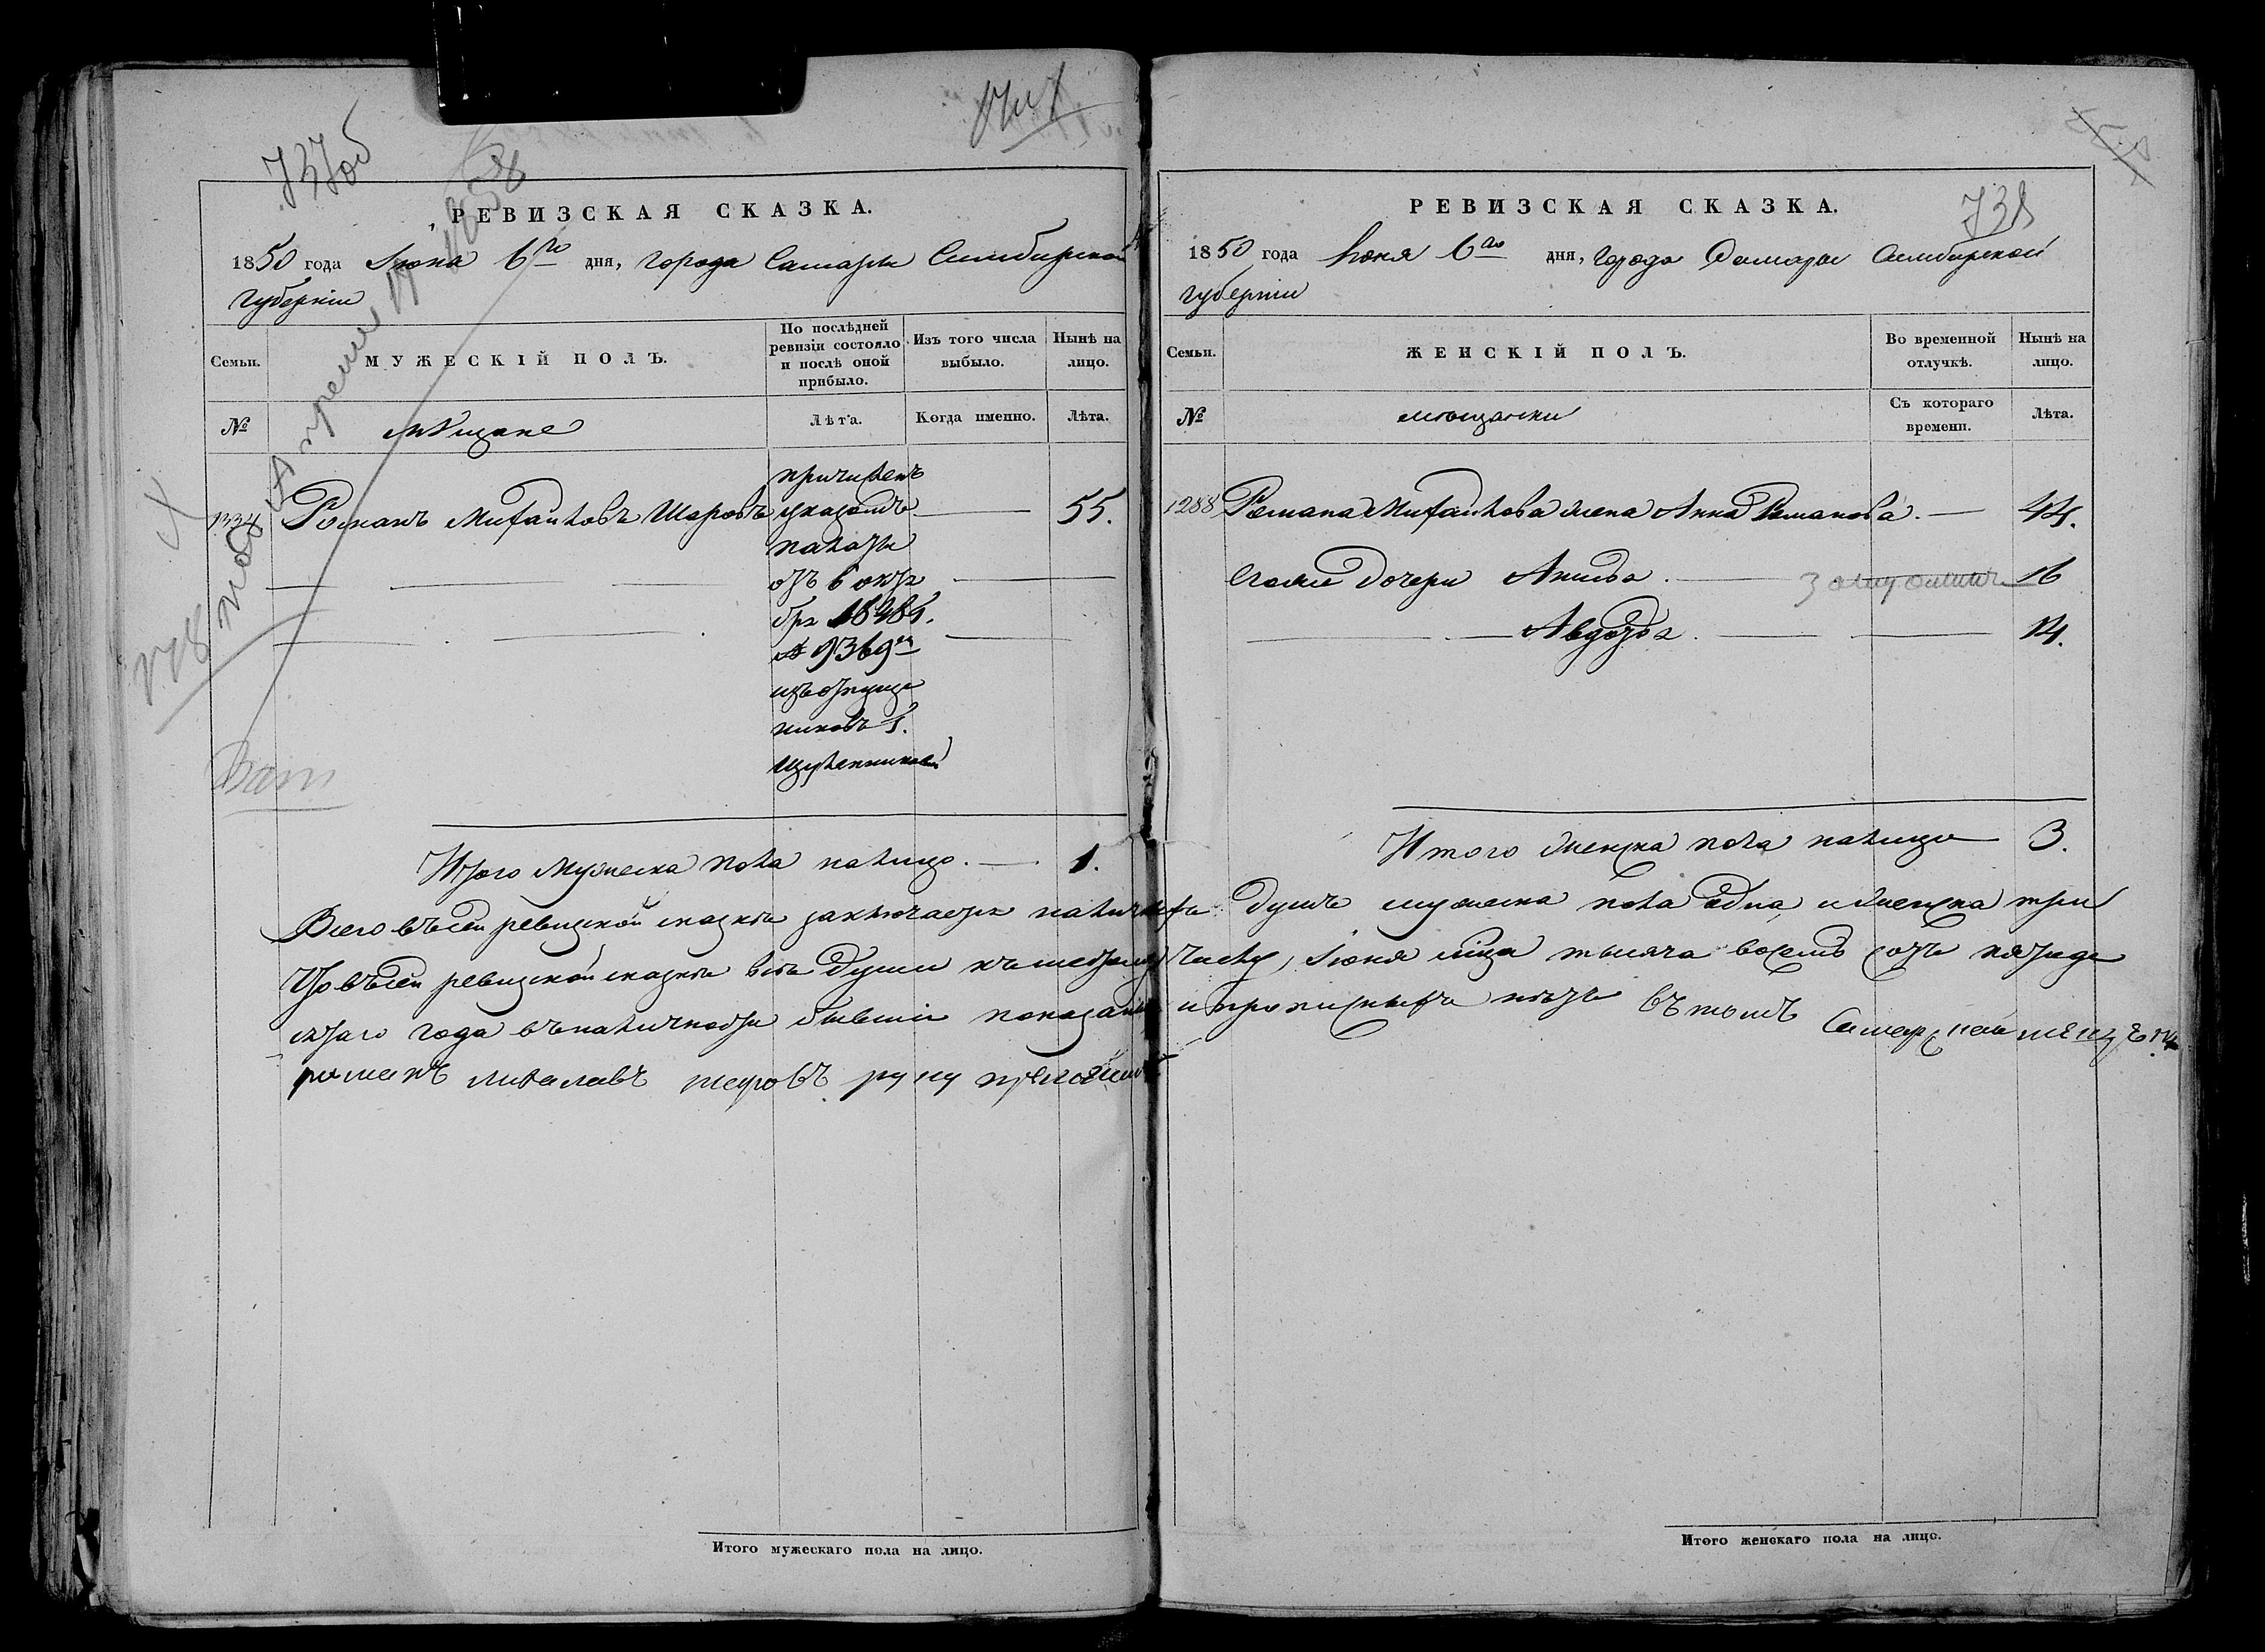 737об
РЕВИЗСКАЯ СКАЗКА.
1850 года Іюня 6го дня, города Самары Симбирской
губерніи
Семьи.
МУЖЕСКІЙ ПОЛЪ.
По послѣдней ревизіи состояло и послѣ оной прибыло.
Изъ того числа выбыло.
Нынѣ на лицо.
№
мѣщане
Лѣта.
Когда именно.
Лѣта.
1334
Романъ Михайловъ Шаровъ
причисленъ
указомъ
палаты
отъ 6 октя
бря 1848 г.
№ 9369
изъ отпуще
никовъ Г.
55.
Итого Мужеска пола налицо. 1.
РЕВИЗСКАЯ СКАЗКА.
738
1850 года Іюня 6го дня, города Самары Симбирской
губерніи
Семьи.
ЖЕНСКІЙ ПОЛЪ.
Во временной отлучкѣ.
Нынѣ на лицо.
№
мѣщанки
Съ котораго времени.
Лѣта.
1288
Романа Михайлова жена Анна Романова. 44.
дочери 16
Авдотья. 14.
Итого женска пола налицо 3.
Всего въ сей ревизской сказкѣ заключается наличныхъ душъ мужеска пола одна и женска три
Что въ сей ревизской сказкѣ всѣ души къ шестому числу Іюня мѣца тысяча восемь сотъ пятьде
сятаго года въ наличности бывшія показаны и прописныхъ нѣтъ въ томъ
романъ шаровъ руку
Итого мужескаго пола на лицо.
Итого женскаго пола на лицо.